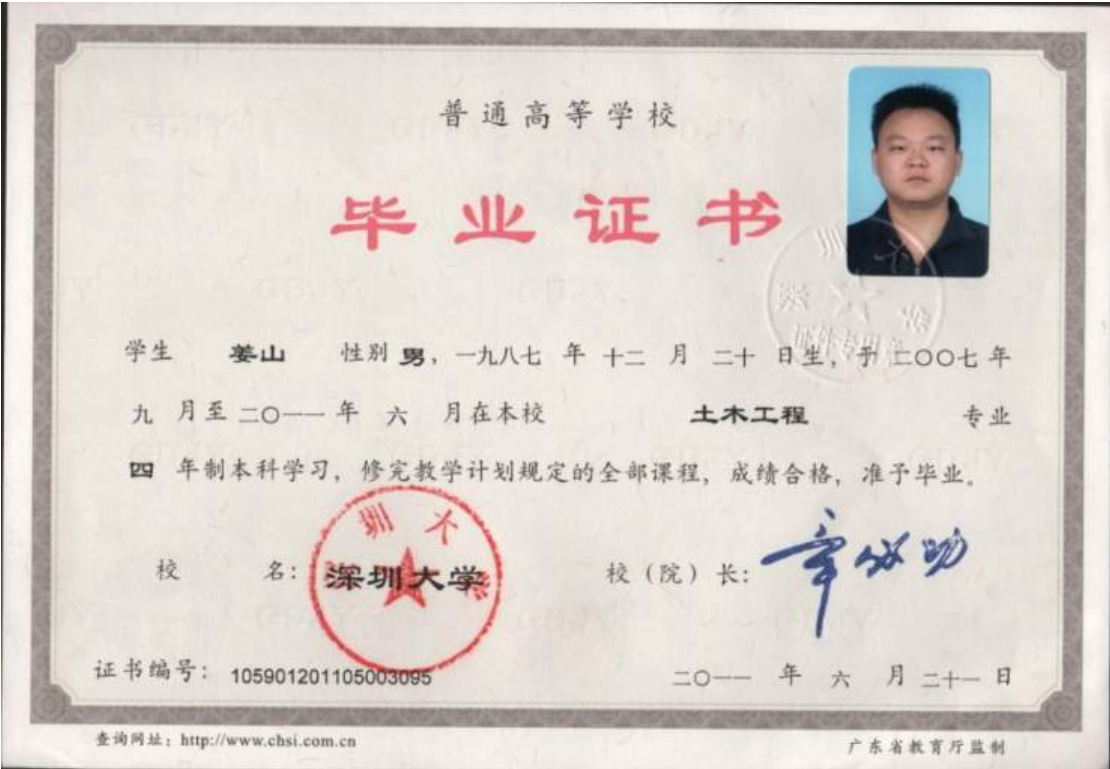 普通高等学校
毕业证书
学生 姜山 性别 男，一九八七 年 十二 月 二十 日生，于 二〇〇七 年
九 月至 二〇一一 年 六 月在本校 土木工程 专业
四 年制本科学习，修完教学计划规定的全部课程，成绩合格，准予毕业。
校 名：深圳大学 校（院）长：
圳大
证书编号：105901201105003095 二〇一一 年 六 月 二十一 日
查询网址：http://www.chsi.com.cn 广东省教育厅监制